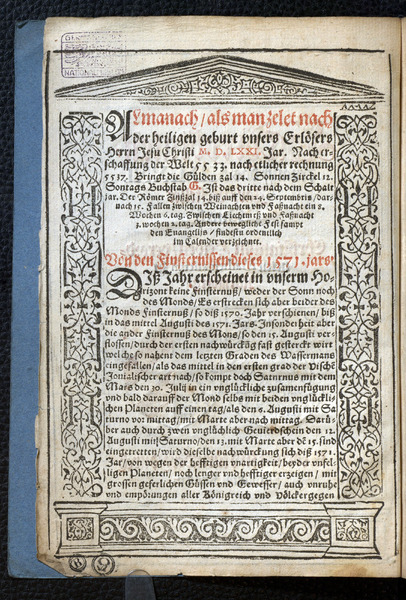 ALmanach / als man zelet nach
der heiligen geburt vnsers Erlösers
Herrn Jesu Christi M. D. LXXI. Jar. Nach er-
schaffung der Welt 5533. nach etlicher rechnung
5537. Bringt die Gülden zal 14. Sonnen Zirckel 12.
Sontags Buchstab G. Ist das dritte nach dem Schalt
jar. Der Römer Zinßzal 14. biß auff den 24. Septembris / dar-
nach 15. Fallen zwischen Weinachten vnd Faßnacht ein 8.
Wochen 6. tag. Zwischen Liechtmeß vnd Faßnacht
3. wochen 2. tag. Andere bewegliche Fest sampt
den Euangelijs / findestu ordentlich
im Calender verzeichnet.
Von den Finsternissen dieses 1571. jars.
DIß Jahr erscheinet in vnserm Ho-
rizont keine Finsternuß / weder der Sonn noch
des Monds / Es erstrecken sich aber beider des
Monds Finsternuß / so diß 1570. Jar verschienen / biß
in das mittel Augusti des 1571. Jars. Insonderheit aber
die ander Finsternuß des Mons / so den 15. Augusti ver-
flossen / durch der ersten nachwürckũg fast gesterckt wirt
welche so nahend dem letzten Graden des Wassermans
eingefallen / als das mittel in den ersten grad der Visché
Zonialischer art nach / So kompt doch Saturnus mit dem
Mars den 30. Julij in ein vnglückliche zusamenfügung
vnd bald darauff der Mond selbs mit beiden vnglückli-
chen Planeten auff einen tag / als den 6. Augusti mit Sa
turno vor mittag / mit Marte aber nach mittag. Darü-
ber auch durch zwen vnglücklich Geuierdschein den 12.
Augusti mit Saturno / den 13. mit Marte aber dé 15. sind
eingerretten / wird dieselbe nachwürckung sich diß 1571.
Jar / von wegen der hefftigen vnartigkeit / beyder vnsel-
ligen Planeten / noch lenger vnd hefftiger erzeigen / mit
grossen geferlichen Güssen vnd Gewesser / auch vnruhe
vnd empörungen aller Königreich vnd Völcker gegen